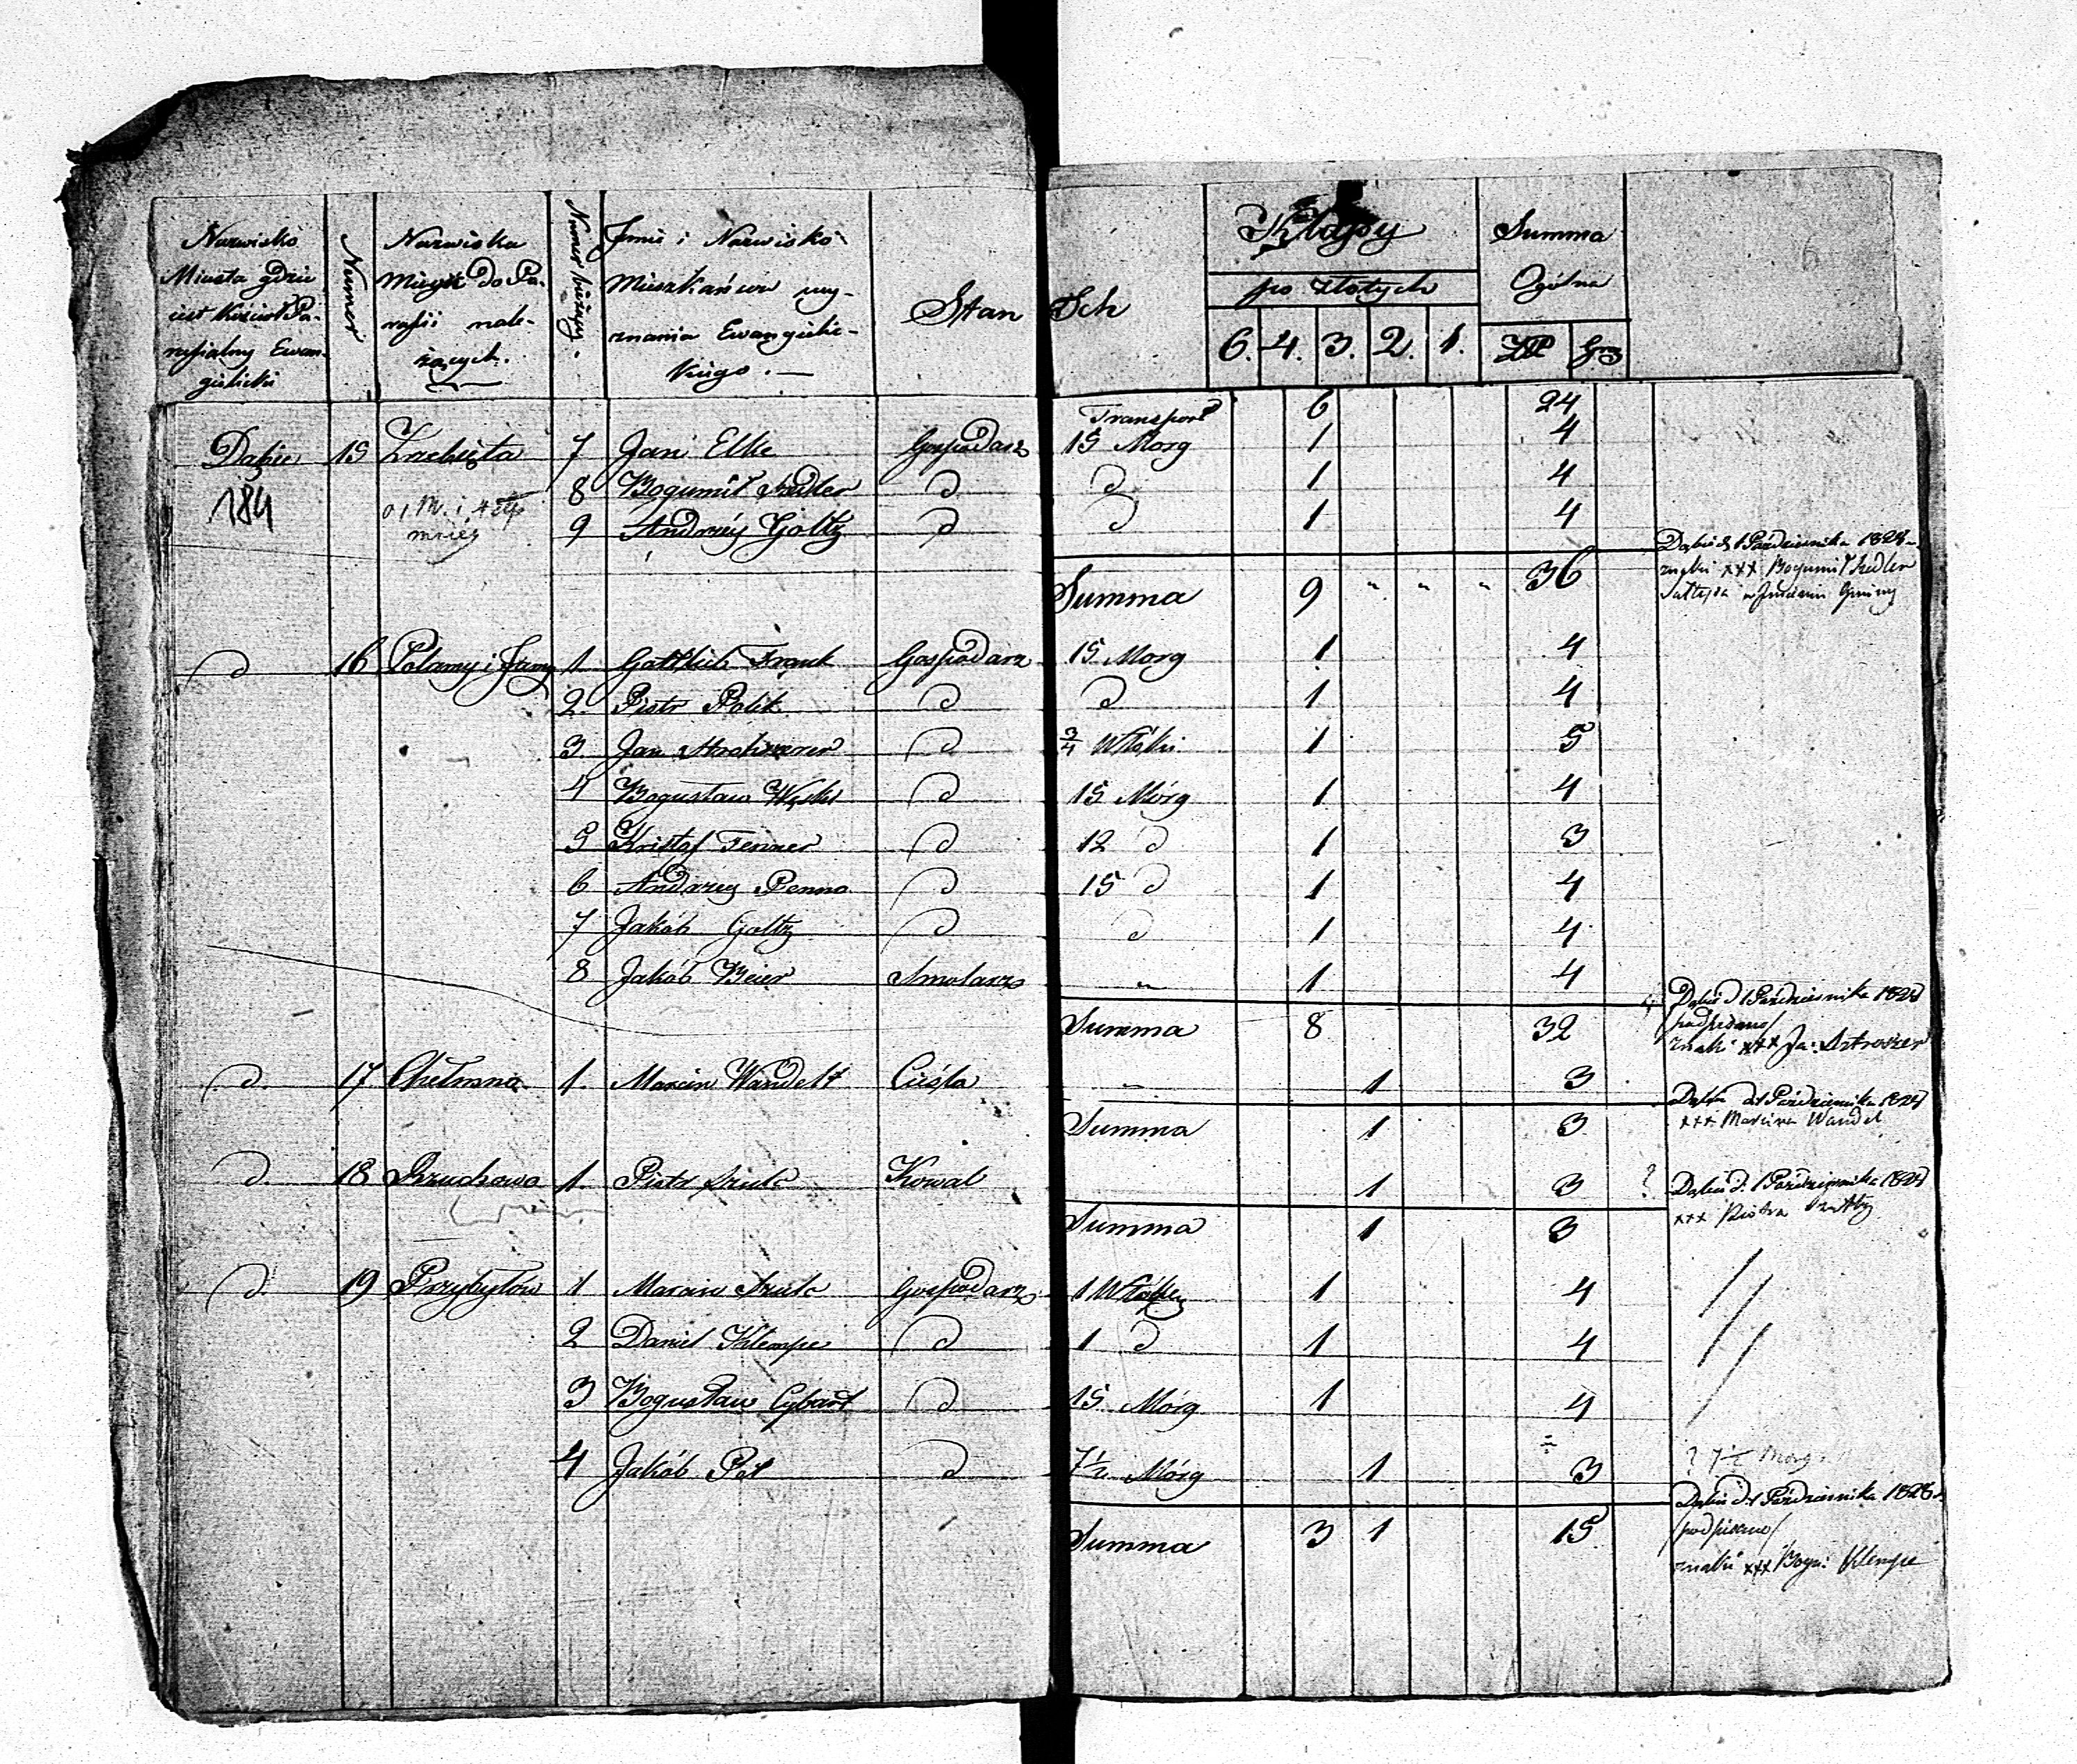 6
Nazwisko Miasta gdzie jest Kościoł Parafialny Ewangielicki
Numer
Nazwiska Mieysc do Parafii należących.
Numer bieżący.
Imie i Nazwisko Mieszkańców wyznania Ewangielickiego.
Stan
Ich
Klassy
po złotych
6. 4. 3. 2. 1.
Summa Ogólna
ZłP Gr
Transport 6 24
Dąbie 15 Zachęta 7 Jan Elke Gospodarz 15 Morg 1 4
184 8 Bogumił Szedler d d 1 4
9 Andrzéy Goltz d d 1 4
Summa 9 " " " 36
Dąbie d 1 Października 1828
znaki xxx Bogumił Szedler
Sołtysa w Imieniu Gminy
d 16 Polamy i 1. Gottlieb Frank Gospodarz 15 Morg 1 4
2. Piotr Polik d d 1 4
3. Jan d 3/4 Włóki 1 5
4 Bogusław d 15 Mórg 1 4
5 Kristof Fenner d 12 d 1 3
6 Andrzey Penno d 15 d 1 4
7 Jakób Goltz d d 1 4
8 Jakób Beier Smolarz " 1 4
Summa 8 32
Dąbie d 1 Października 1828
/podpisano/
znaki xxx Ja:
d. 17 Chełmno 1. Marcin Wandelt Cieśla " 1 3
Summa 1 3
d 1 Października 1828
xxx Marcina Wandel
d. 18 1. Piotr Szulc Kowal 1 3 ?
Summa 1 3
Dąbie d. 1 Października 1828
xxx Piotra
d 19 Przybyłów 1 Marcin Szulc Gospodarz 1 Włóka 1 4
2 Daniel Klempe d 1 d 1 4
3 Bogusław Cybart d 15 Mórg 1 4
4 Jakób Pol d 7 1/2 Mórg 1 3
? 7 1/2 Morg.
Summa 3 1 15
Dąbie d 1 Października 1828
/podpisano/
znaki xxx Bogu: Klempe